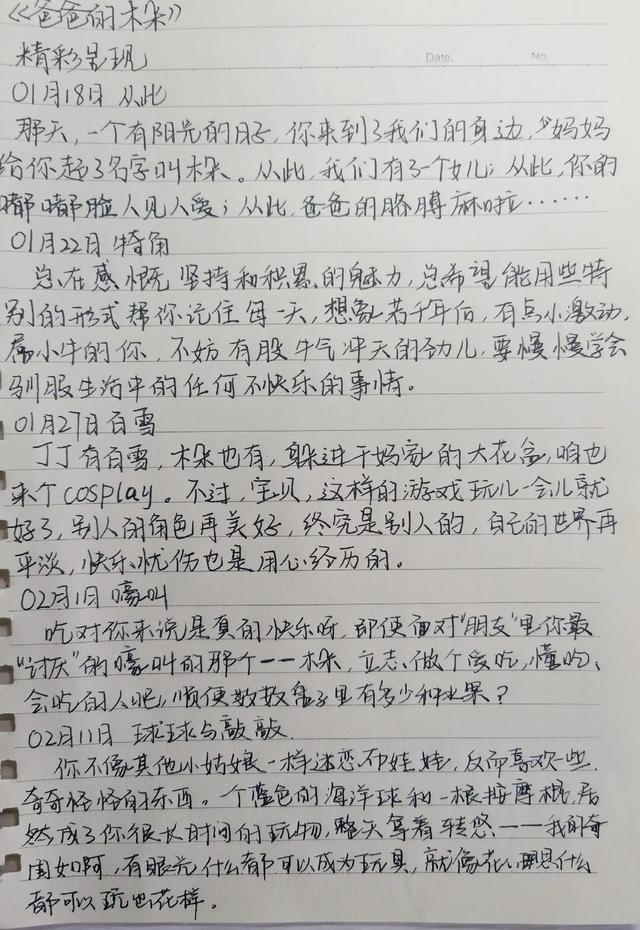 《爸爸的木朵》
精彩呈现
Date. No.
01月18日 从此
那天,一个有阳光的日子,你来到了我们的身边,妈妈
给你起了名字叫木朵。从此,我们有了一个女儿;从此,你的
嘟嘟脸人见人爱;从此,爸爸的胳膊麻啦……
01月22日 犄角
总在感慨坚持和积累的魅力,总希望能用些特
别的形式帮你记住每一天,想象若干年后,有点小激动,
属小牛的你,不妨有股牛气冲天的劲儿,要慢慢学会
驯服生活中的任何不快乐的事情。
01月27日 白雪
丁丁有白雪,木朵也有,躲进干妈家的大花盆,咱也
来个cosplay。不过,宝贝,这样的游戏玩儿一会儿就
好了,别人的角色再美好,终究是别人的,自己的世界再
平淡,快乐忧伤也是用心经历的。
02月1日 嚎叫
吃对你来说是真的快乐呀,即便面对“朋友”里你最
“讨厌”的嚎叫的那个——木朵,立志做个爱吃、懂吃、
会吃的人吧,顺便数数盘子里有多少种水果?
02月11日 球球与敲敲
你不像其他小姑娘一样迷恋布娃娃,反而喜欢一些
奇奇怪怪的东西。一个蓝色的海洋球和一根按摩棍,居
然成了你很长时间的玩物,整天拿着转悠——我的奇
囡如啊,有眼光,什么都可以成为玩具,就像花心思什么
都可以玩出花样。